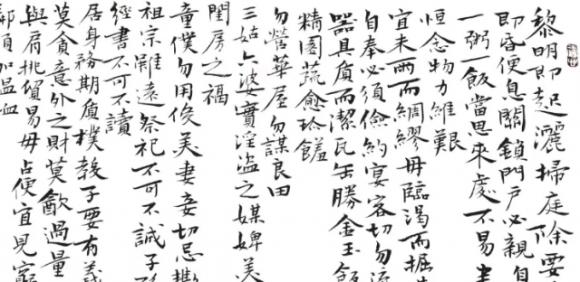 黎明即起灑掃庭除要
即昏便息關鎖門户必親自
一粥一飯當思來處不易
恒念物力維艱
宜未雨而綢繆毋臨渴而掘
自奉必須儉約宴客切勿流
器具質而潔瓦缶勝金玉飯
精園蔬愈珍饈
勿營華屋勿謀良田
三姑六婆實淫盜之媒婢美
閨房之禍
童僕勿用俊美妻妾切忌
祖宗雖遠祭祀不可不誠子
經書不可不讀
居身務期質樸教子要有義
莫貪意外之財莫飲過量
與肩挑貿易毋占便宜見窮
須加温